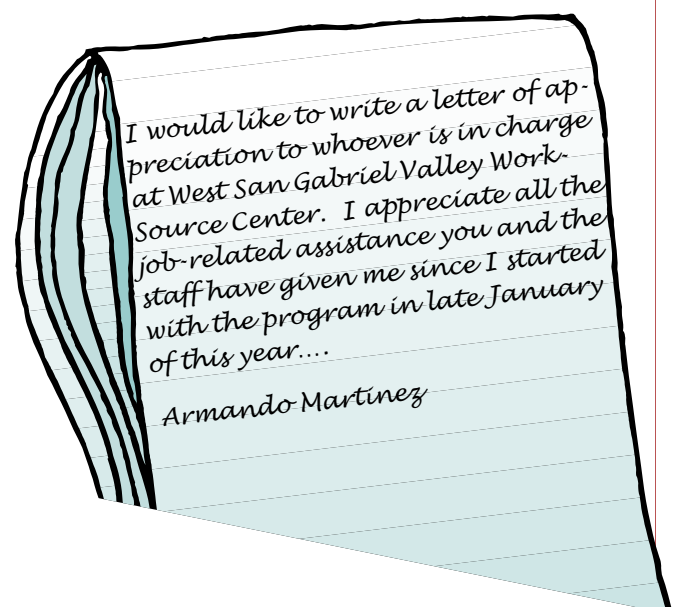 I would like to write a letter of ap-
preciation to whoever is in charge
at West San Gabriel Valley Work-
Source Center.  I appreciate all the
job-related assistance you and the
staff have given me since I started
with the program in late January
of this year….
Armando Martinez